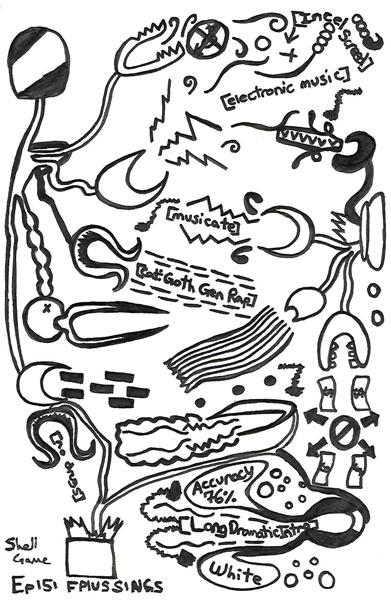 [Incel
[electronic music]
[musicate]
Goth Gen Rap]
$ $
$ $
Accuracy
76%
[Long Dramatic Intro]
White
Shell
Game
Ep15: FPlUSSINGS